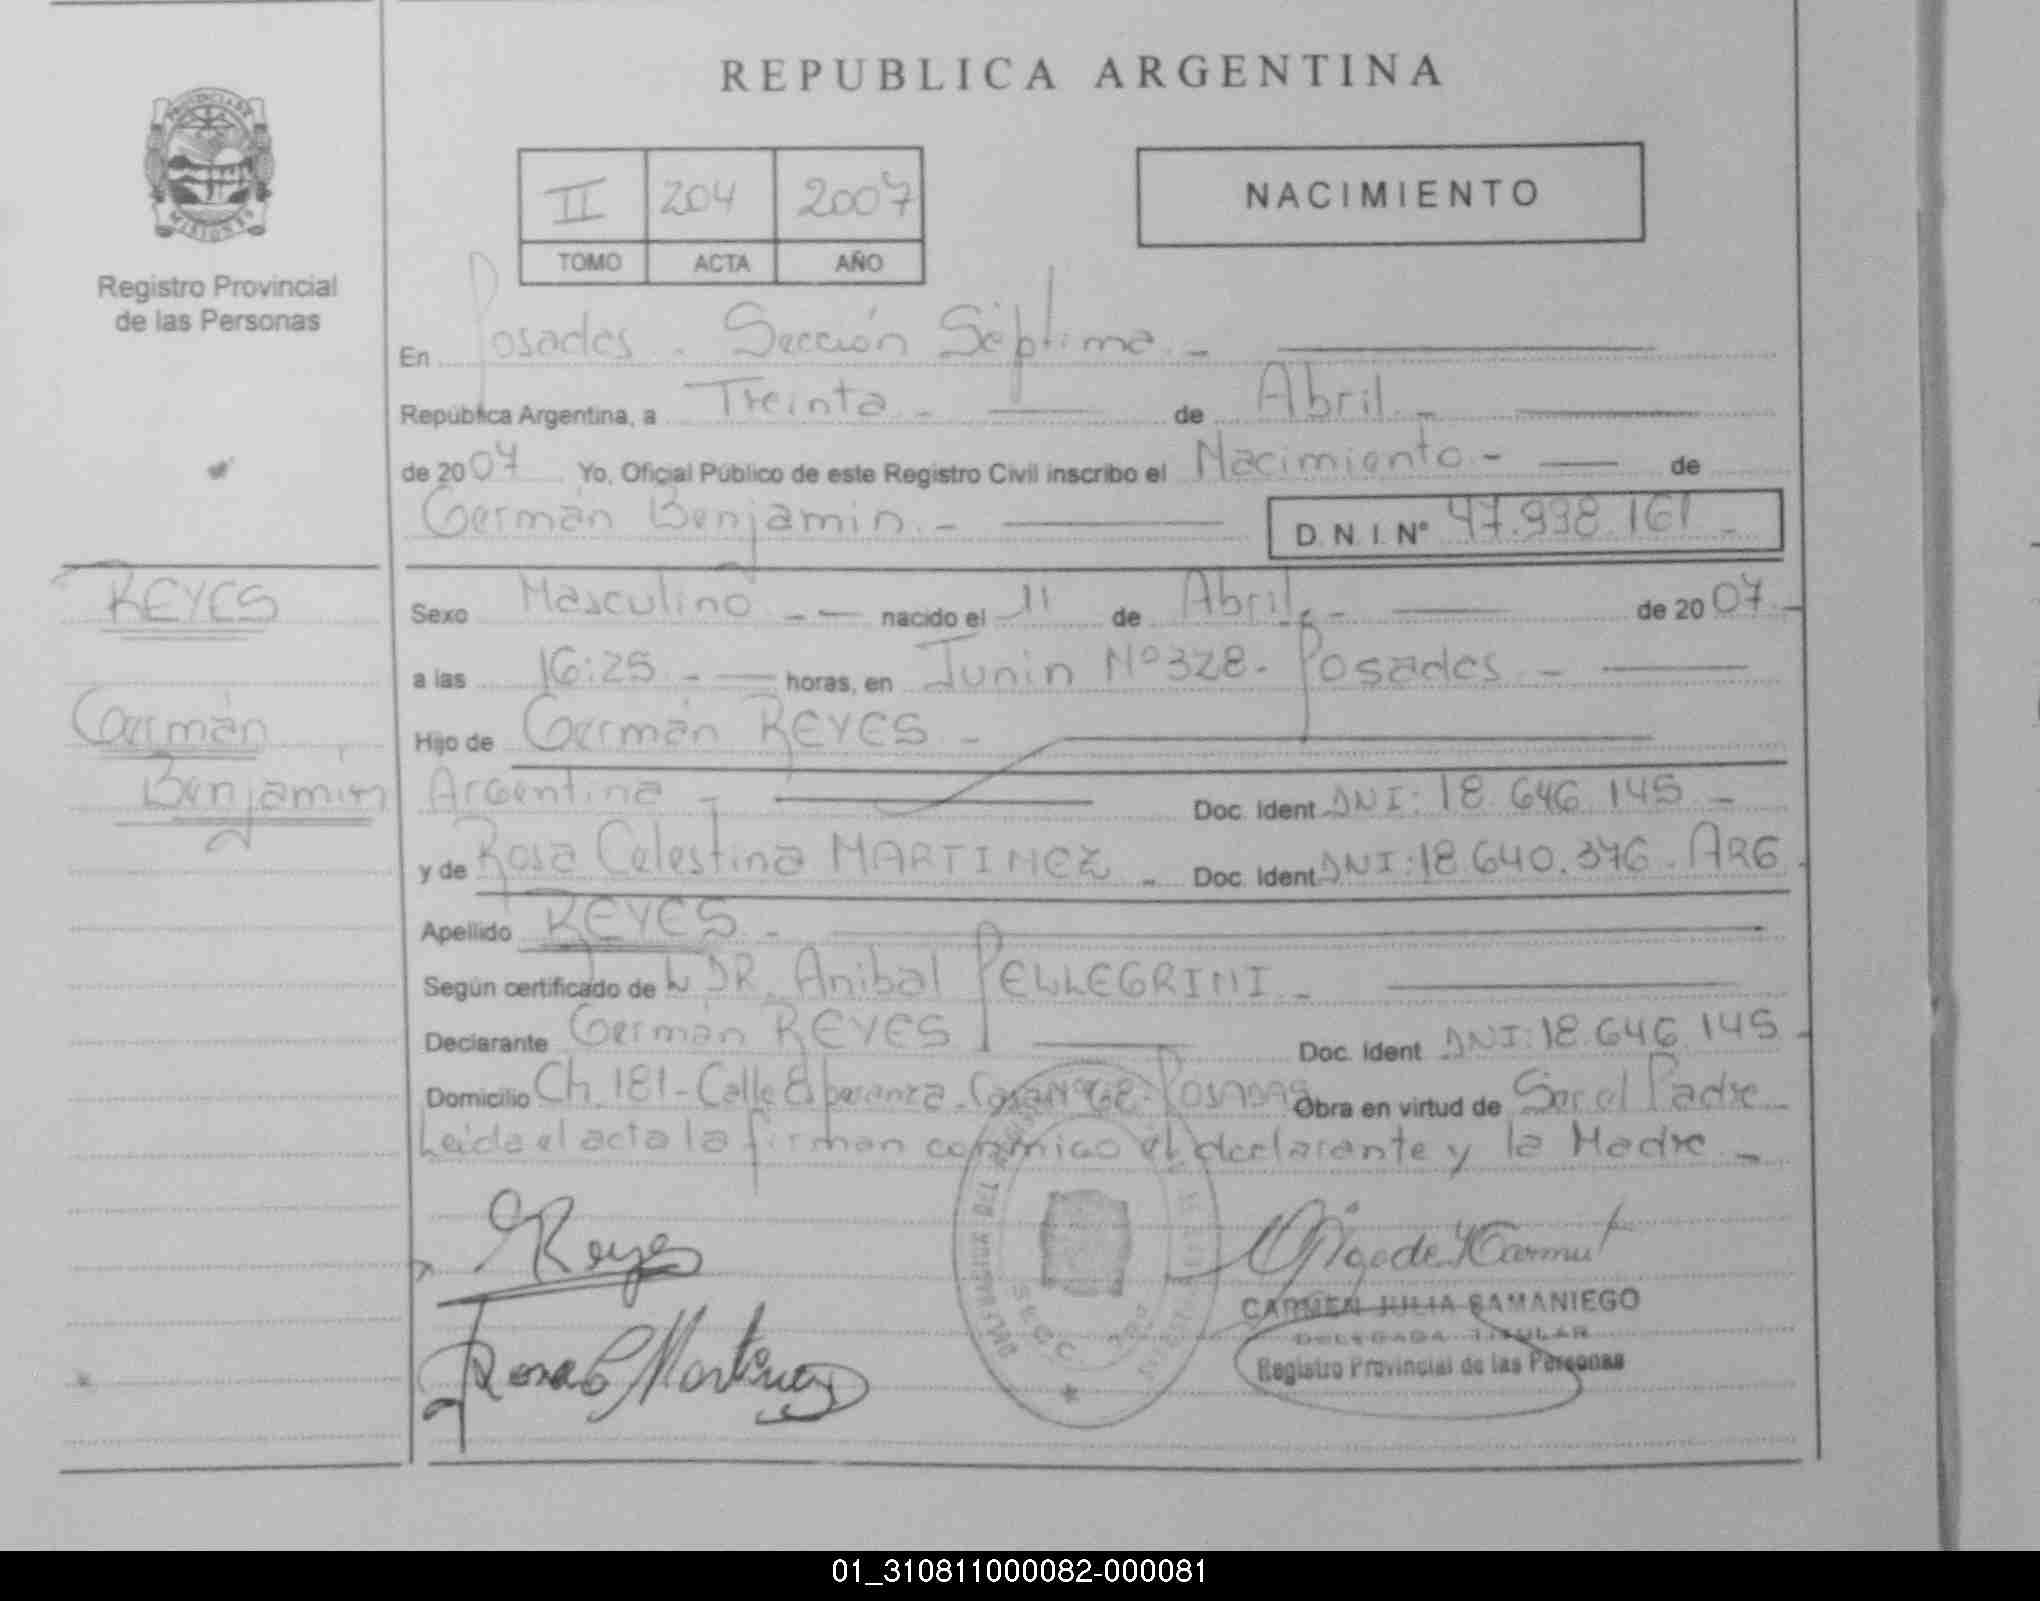 REPUBLICA ARGENTINA
PROVINCIA DE
MISIONES
Registro Provincial
de las Personas
II 204 2007
TOMO ACTA AÑO
NACIMIENTO
En Posadas. Sección Séptima. -
República Argentina, a Treinta - de Abril -
de 2007 Yo, Oficial Público de este Registro Civil inscribo el Nacimiento - de
Germán Benjamin. - D.N.I. Nº 47.938.161 -
REYES
Germán
Benjamin
Sexo Masculino - nacido el 11 de Abril - de 2007.-
a las 16:25 - horas, en Junin Nº 328- Posadas -
Hijo de Germán REYES -
Argentina - Doc. Ident DNI: 18.646.145 -
y de Rosa Celestina MARTINEZ - Doc. Ident DNI: 18.640.376. ARG.
Apellido REYES -
Según certificado de DR. Anibal PELLEGRINI -
Declarante Germán REYES Doc. Ident DNI: 18.646.145 -
Domicilio Ch. 181- Calle Esperanza Casa Nº Posadas Obra en virtud de Ser el Padre
Leida el acta la firman conmigo el declarante y la Madre -
GReyes
Rosa C Martinez
SECC.
CARMEN JULIA SAMANIEGO
DELEGADA TITULAR
Registro Provincial de las Personas
01_310811000082-000081